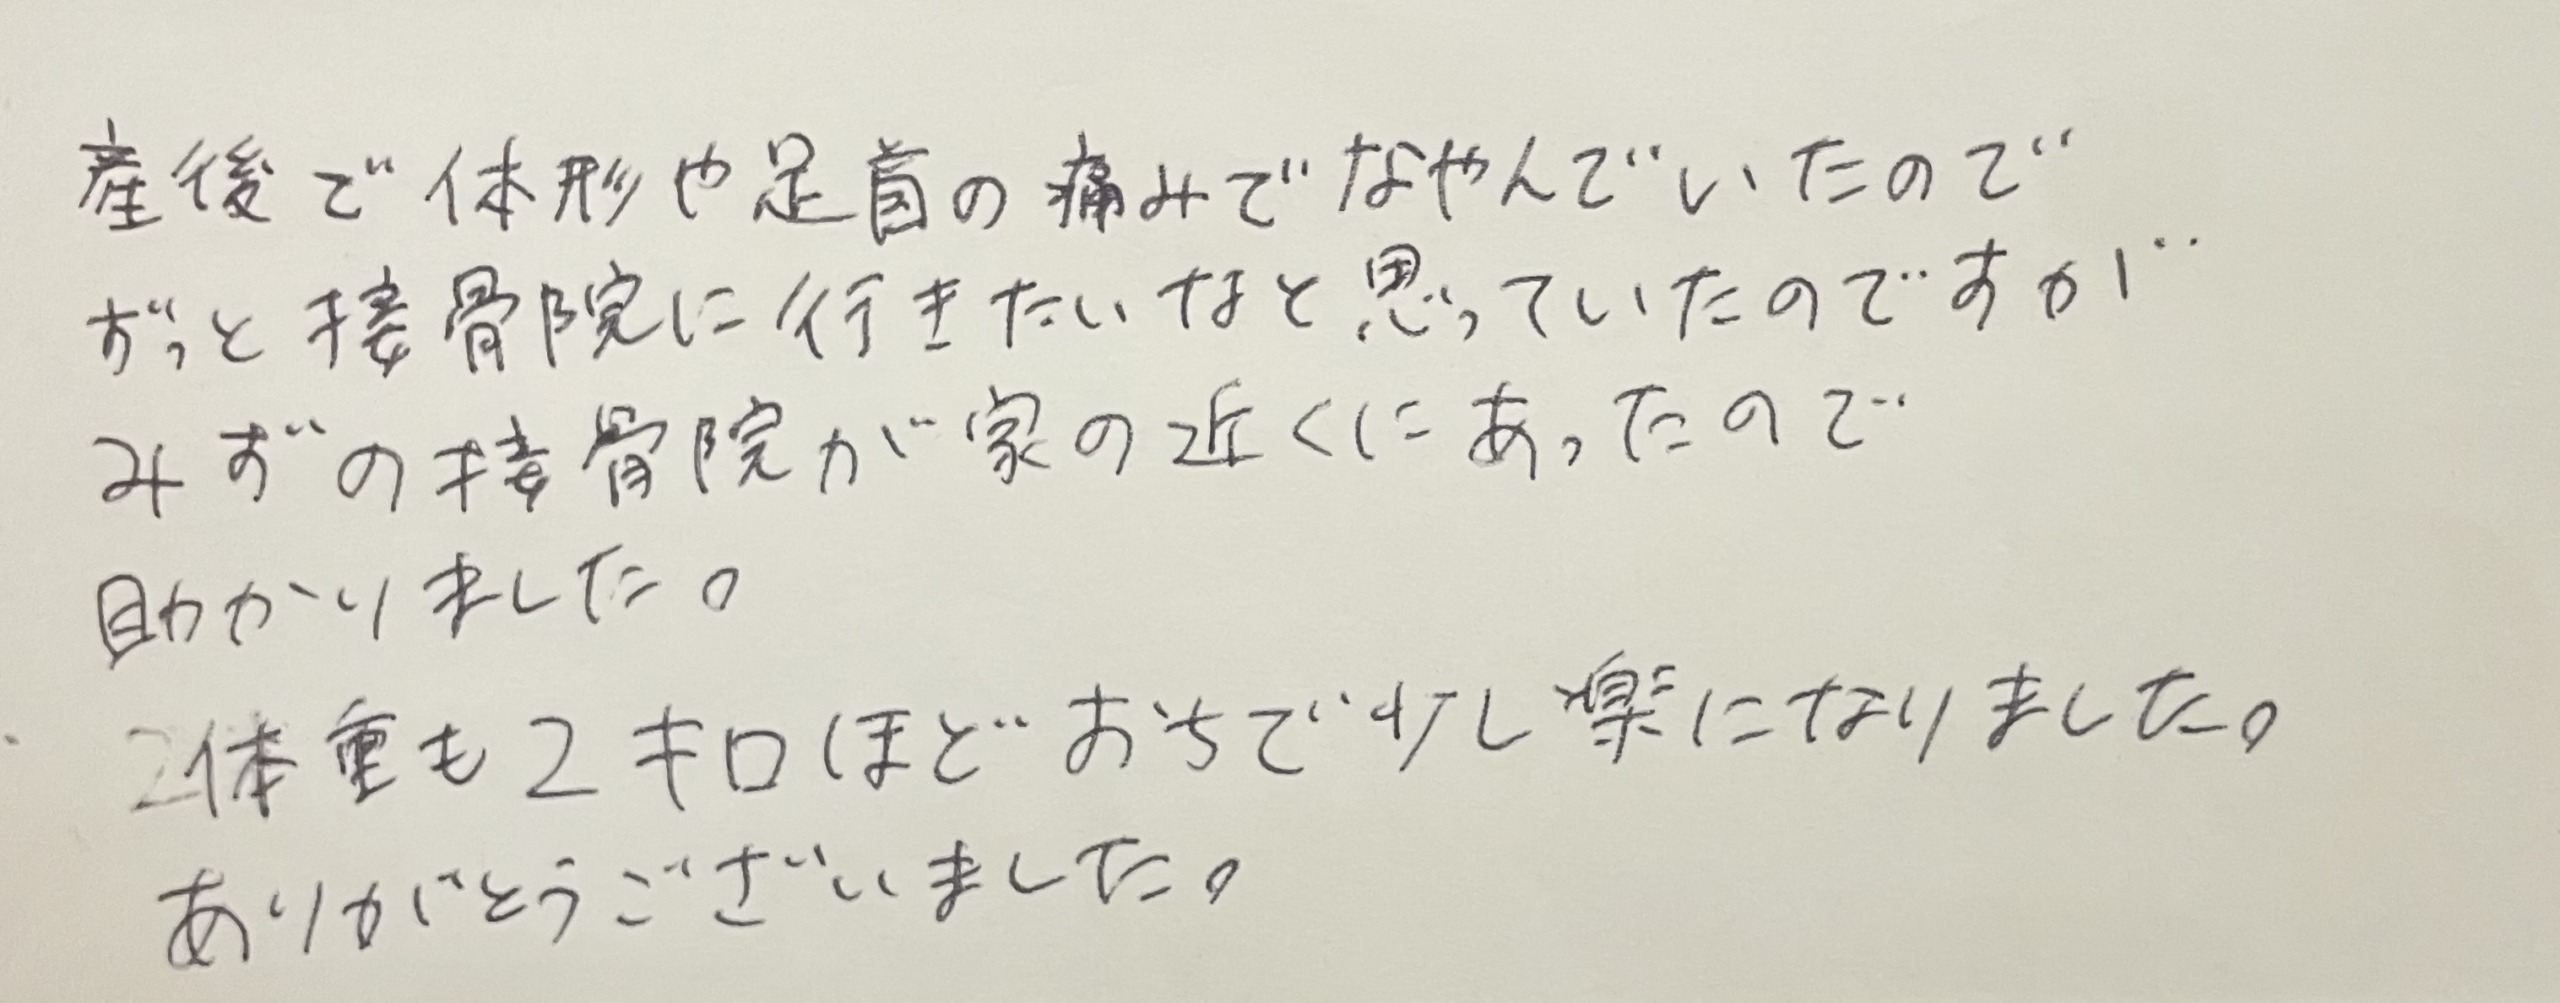 産後で体形や足首の痛みでなやんでいたので
ずっと接骨院に行きたいなと思っていたのですが
みずの接骨院が家の近くにあったので
助かりました。
体重も2キロほどおちで少し楽になりました。
ありがとうございました。